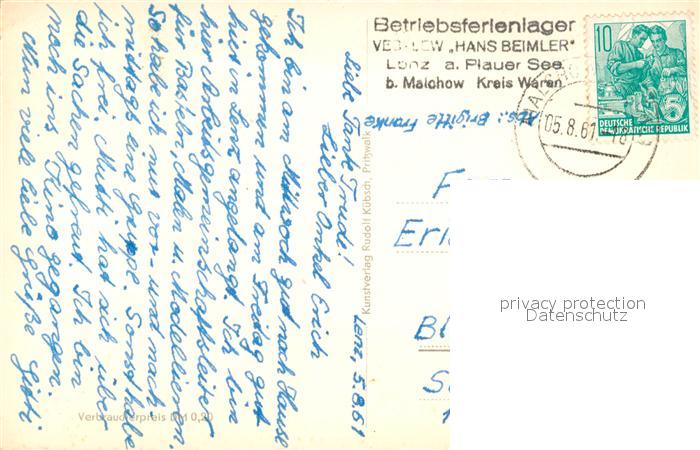 Betriebsferienlager
VEB-LEW „HANS BEIMLER"
Lenz a. Plauer See
b. Malchow Kreis Waren
10
DEUTSCHE
DEMOKRATISCHE REPUBLIK
5
MALCHOW
05.8.61-18
Abs.: Brigitte Franke
Lenz, 5.8.61
Liebe Tante Trudi!
Lieber Onkel Erich
Ich bin am Mittwoch gut nach Hause
gekommen und am Freitag gut
hier in Lenz angelangt. Ich bin
hier Arbeitsgemeinschaftsleiter
für Basteln, Malen u. Modellieren.
So habe ich nur vor- und nach-
mittags eine Gruppe. Sonst habe
ich frei. Mutti hat sich über
die Sachen gefreut. Ich bin
noch ins Kino gegangen.
Nun viel liebe Grüße Gitti.
Kunstverlag Rudolf Kübsch, Pritzwalk
Verbraucherpreis DM 0,20
F
Eri
Bl
S
privacy protection
Datenschutz